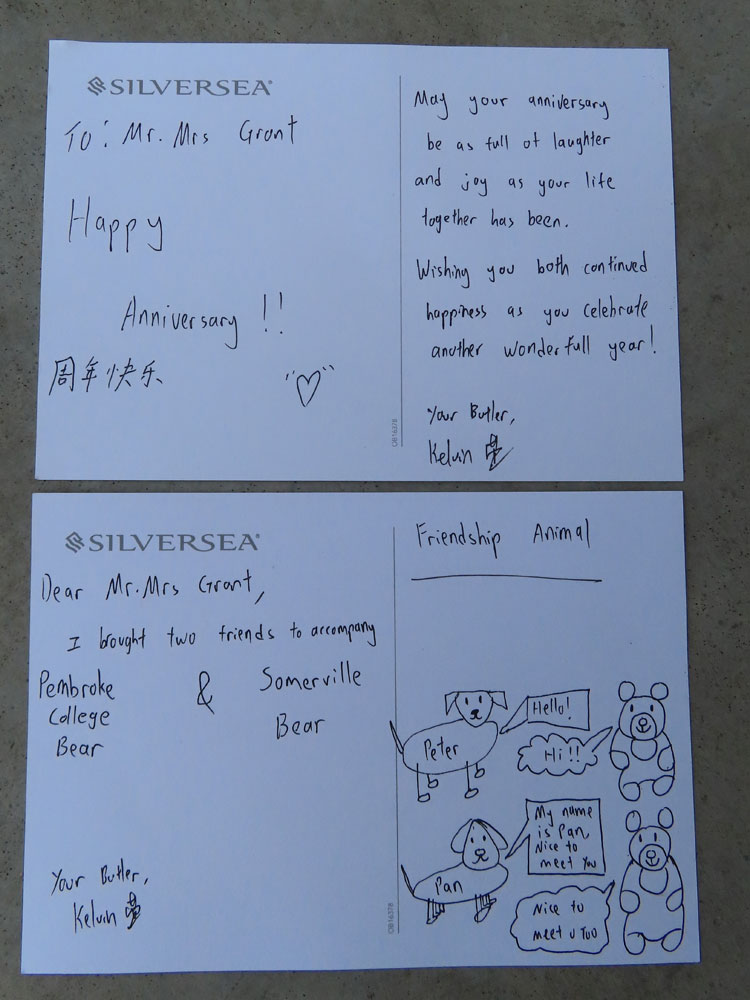 SILVERSEA
To: Mr. Mrs Grant
Happy
Anniversary !!
周年快乐
May your anniversary
be as full of laughter
and joy as your life
together has been.
Wishing you both continued
happiness as you celebrate
another wonderfull year!
Your Butler,
Kelvin
OB16378
SILVERSEA
Dear Mr.Mrs Grant,
I brought two friends to accompany
Pembroke
College
Bear
&
Somerville
Bear
Your Butler,
Kelvin
OB16378
Friendship Animal
Peter
Hello!
Hi!!
Pan
My name
is Pan,
Nice to
meet You
Nice to
meet U Too